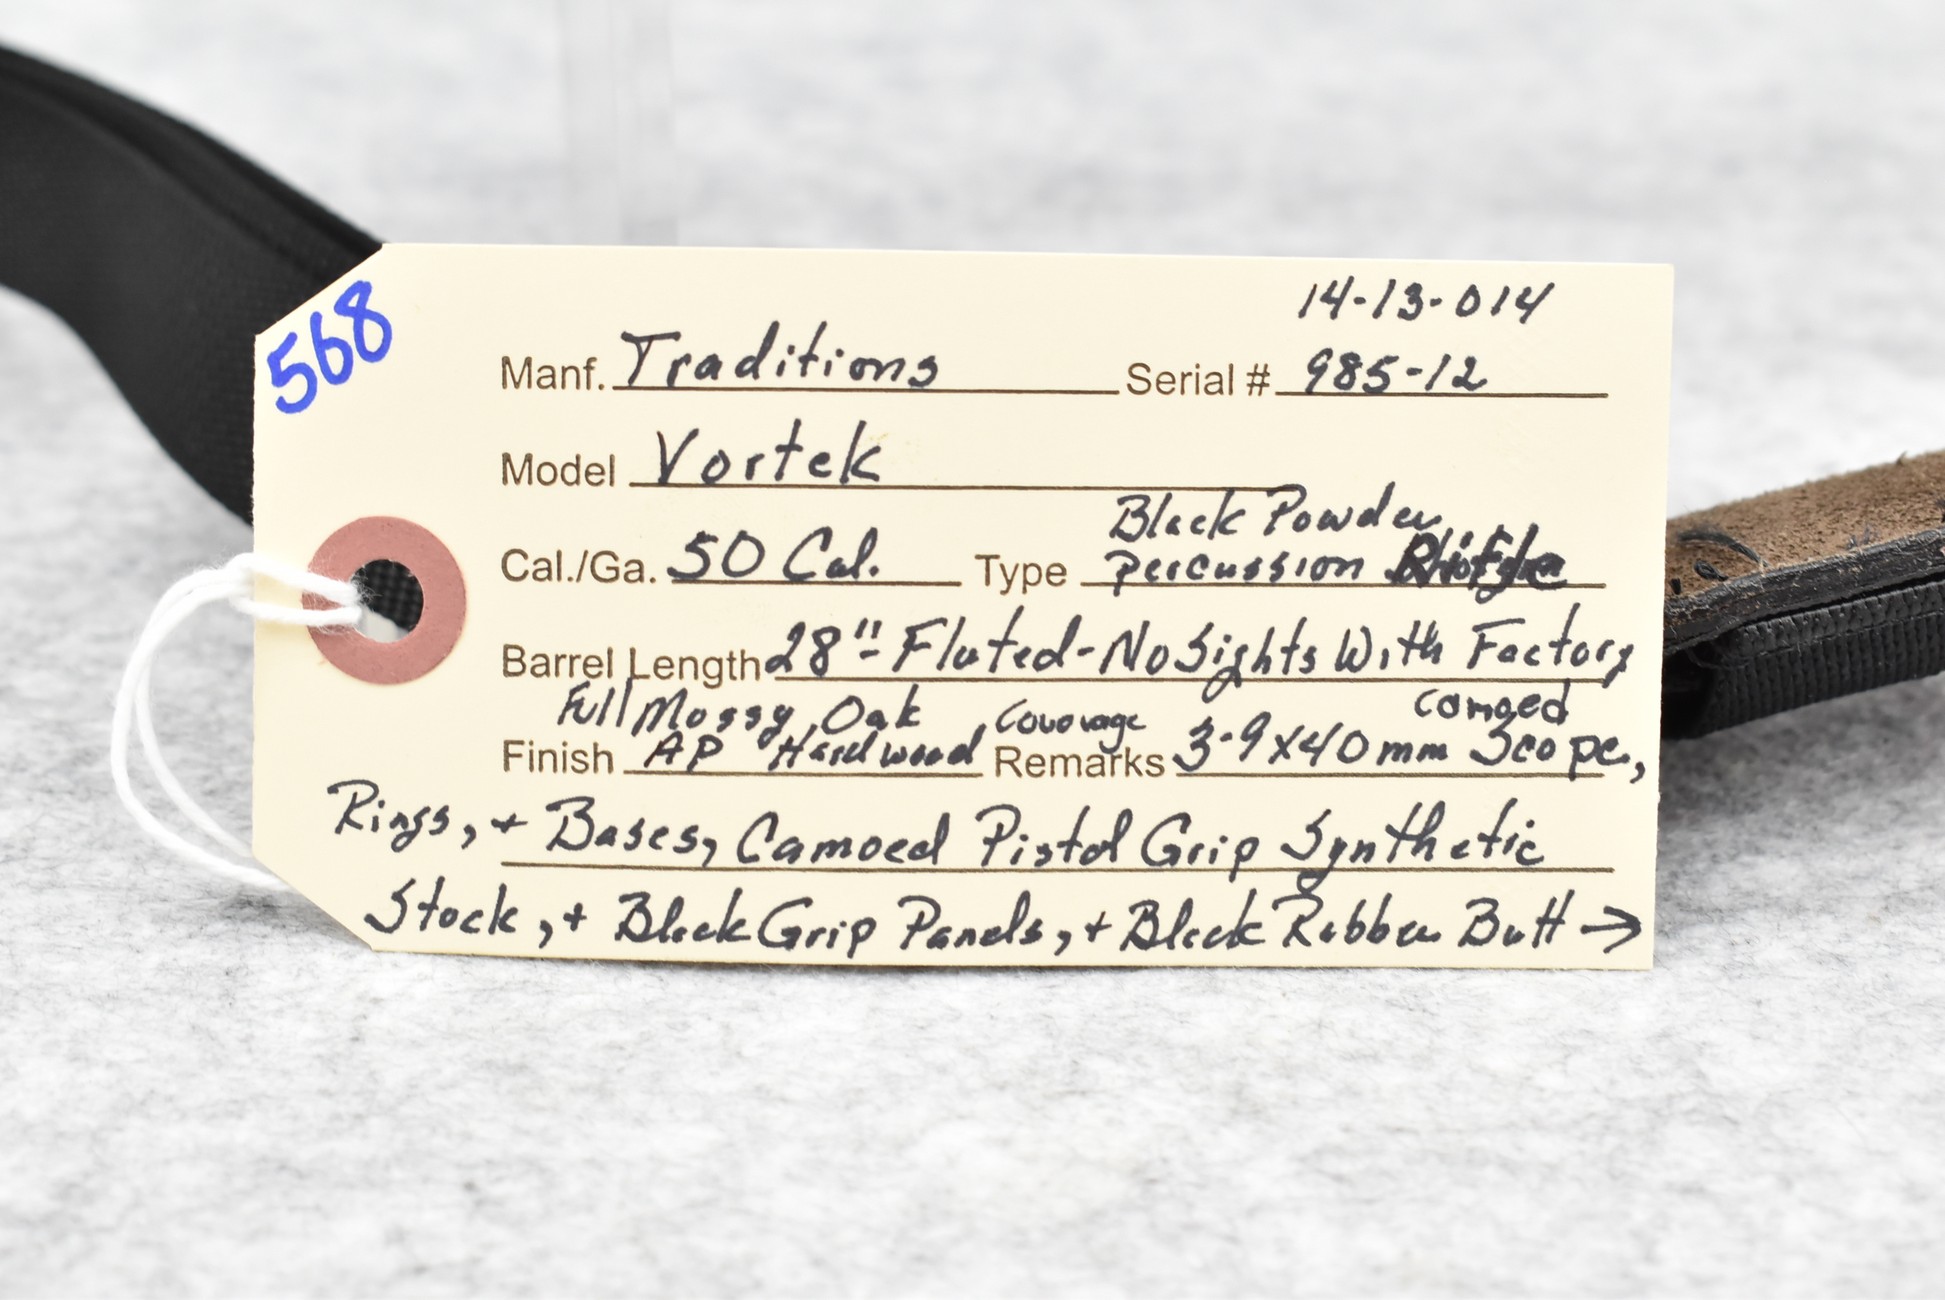 568
14-13-014
Manf. Traditions Serial # 985-12
Model Vortek
Black Powder
Cal./Ga. 50 Cal. Type Percussion Rifle
Barrel Length 28"- Fluted-No Sights With Factory
Full Mossy Oak Coverage Camoed
Finish AP Hardwood Remarks 3-9x40mm Scope,
Rings, + Bases, Camoed Pistol Grip Synthetic
Stock, + Black Grip Panels, + Black Rubber Butt →